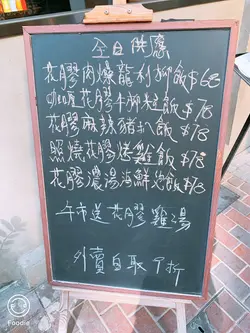 全日供應
花膠肉爆龍利柳飯$68
咖喱花膠牛柳粒飯$78
花膠麻辣豬扒飯$78
照燒花膠烤雞飯$78
花膠濃湯海鮮泡飯$113
午市送花膠雞湯
外賣自取9折
Foodie